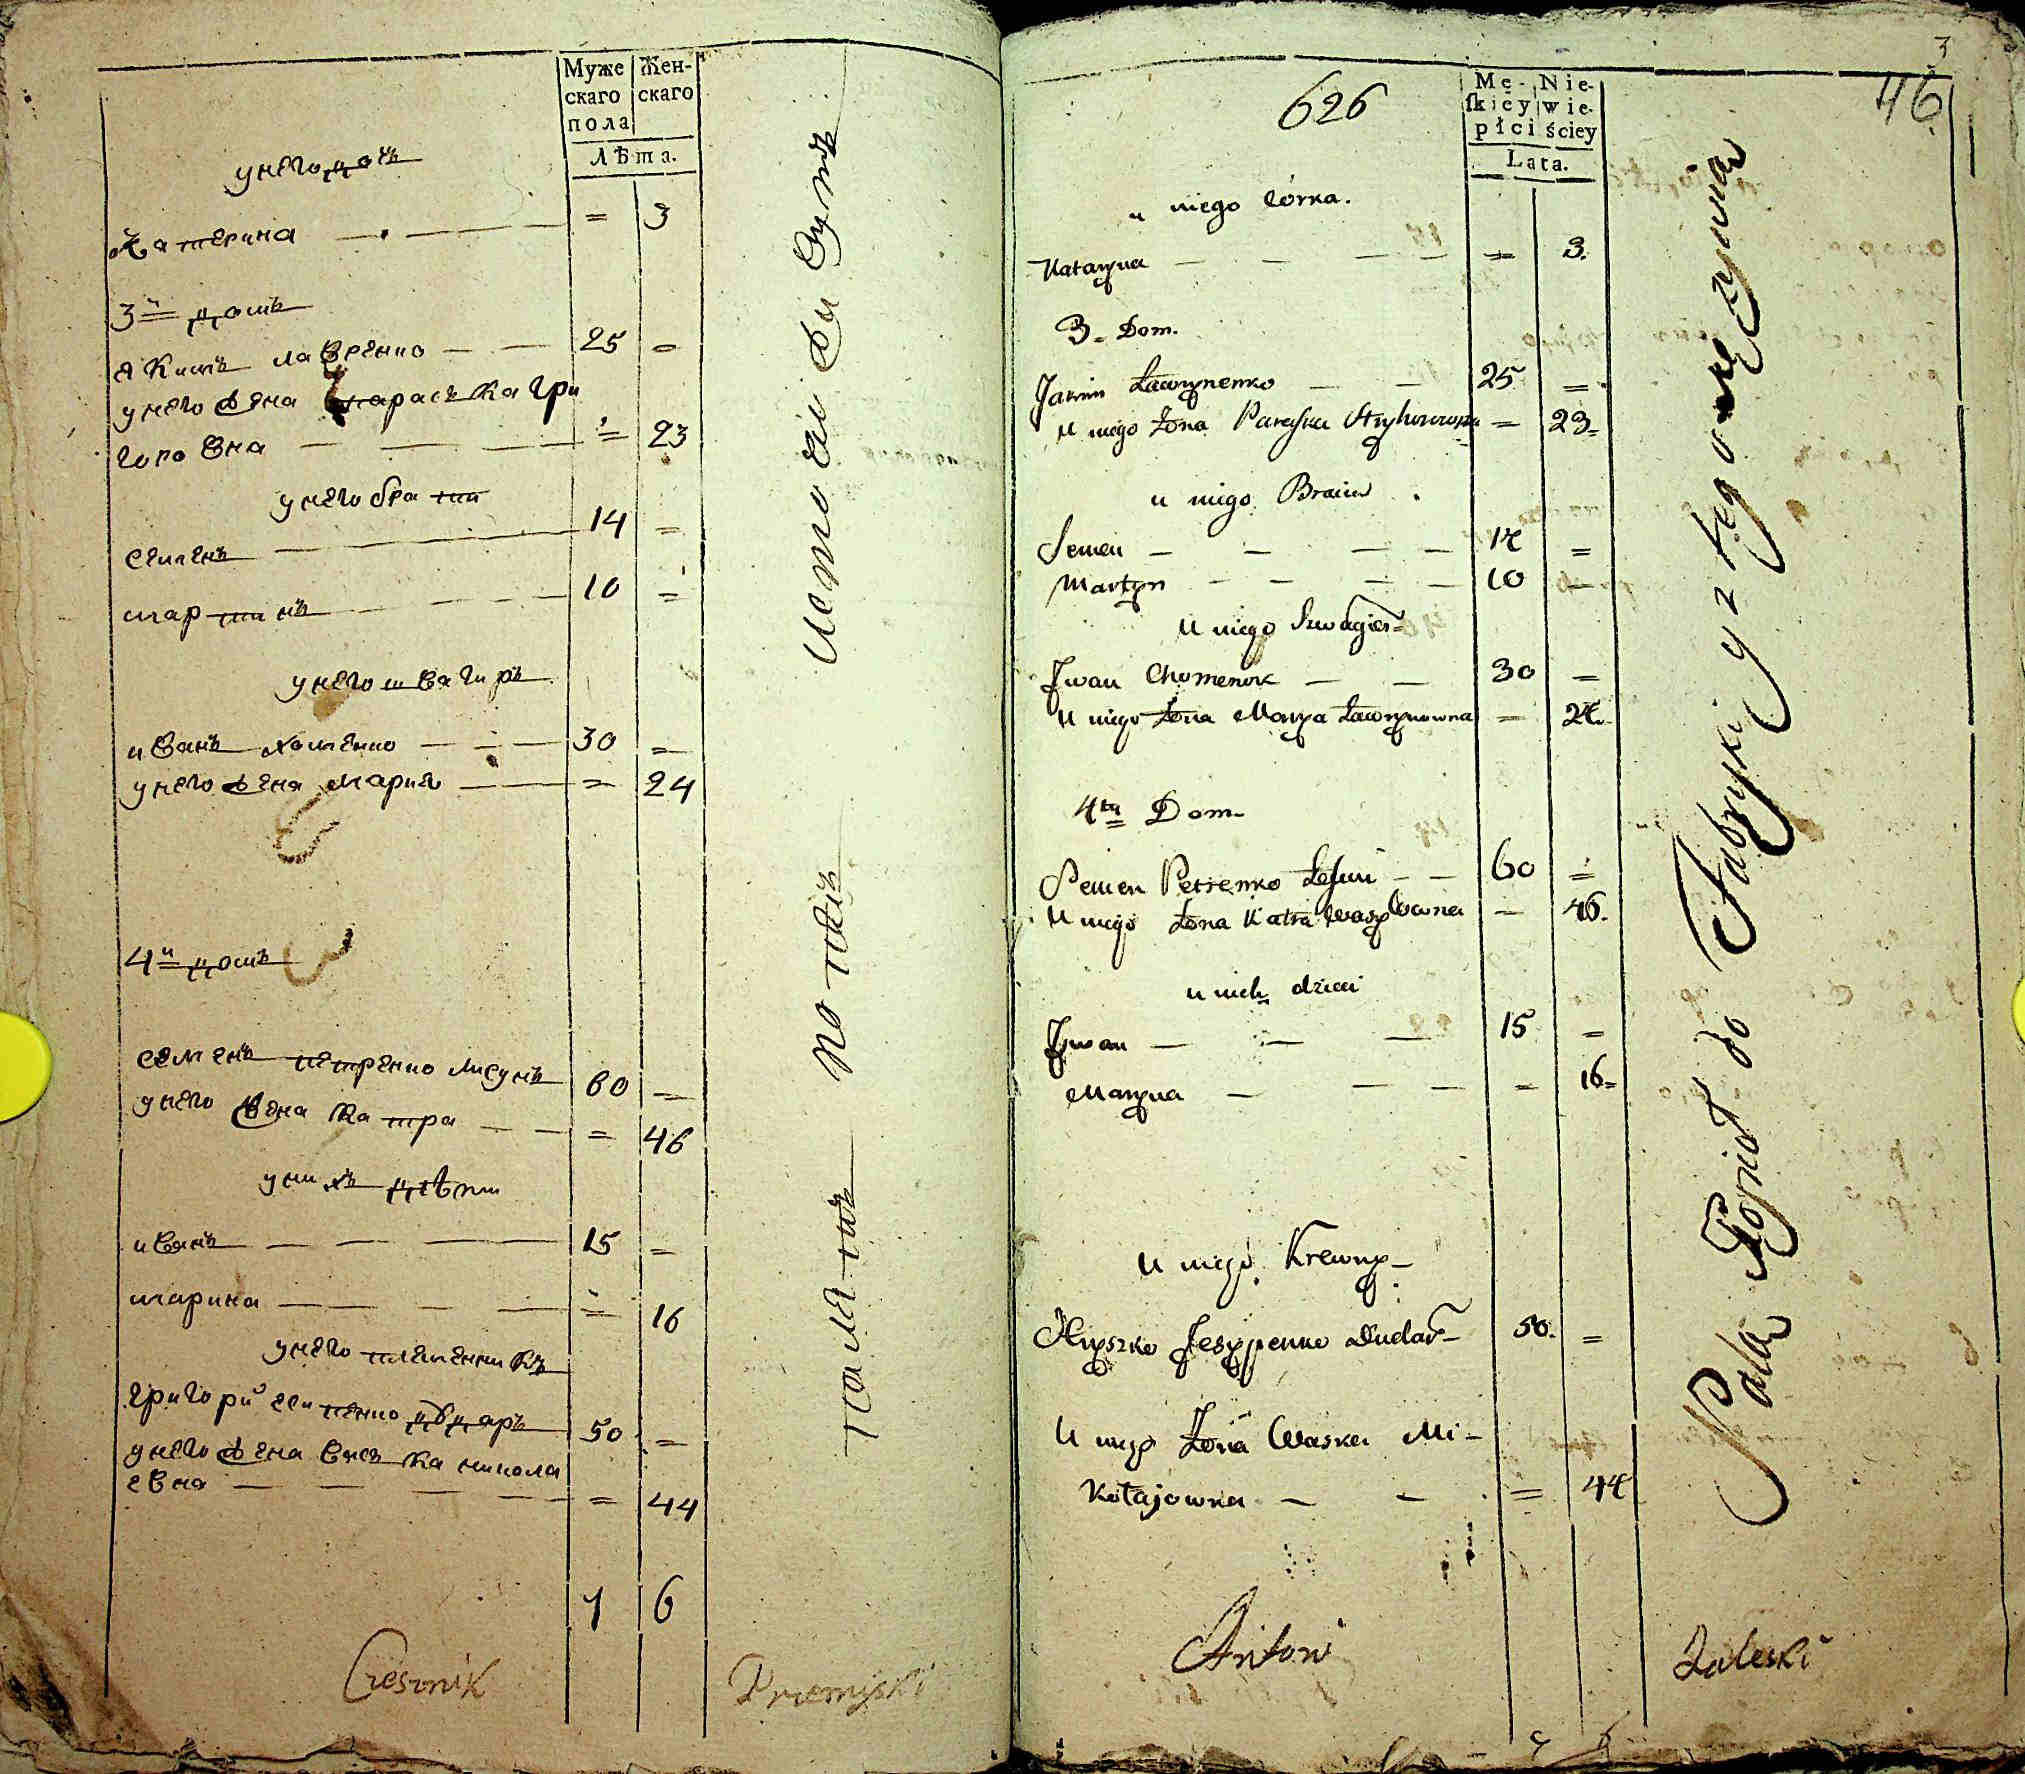 Муже
скаго
пола
Жен-
скаго
Лѣта.
у него доч
Катерина — — = 3
3й домъ
Якимъ Лавренко — — 25 =
у него жена Параска Гри
горовна — — — = 23
у него брати
Семенъ — 14 =
Мартинъ — — 10 =
у него швагиръ
Иванъ Хоменко — — — 30 =
у него жена Мария — — = 24
4й домъ
Семенъ Петренко Лисунъ 60 =
у него жена Катра — — = 46
у нихъ дѣти
Иванъ — — — 15 =
Марина — — — — = 16
у него племенникъ
Григорий Есипенко Дударъ 50 =
у него жена Васка Никола
евна — — — — = 44
7 6
Czesznik Przemyski
3
46
626
Mę-
skiey
płci
Nie-
wie-
ściey
Lata.
u niego Córka.
Kataryna — — — — = 3.
3. Dom.
Jakim Ławrynenko — — 25 =
U niego Żona Paraska Hryhorowna = 23
u niego Bracia
Semen — — — — 14 =
Martyn — — — — 10 —
U niego Szwagier
Jwan Chomenok — — 30 =
U niego Żona Marya Ławrynowna = 24
4ty Dom
Semen Petrenko Łesun — — 60 =
U niego Żona Katra Wasylowna — 46.
u nich dzieci
Jwan — — — 15 =
Maryna — — — = 16
U niego Krewny
Hryszko Jesypenko Dudar 50. =
U niego Żona Waska Mi-
kołajowna — — = 44
Pala Potiut do Fabryki y z tego się żywią
Antoni Zaleski